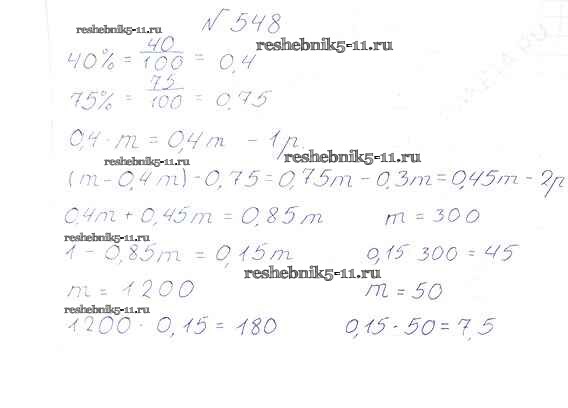 № 548
reshebnik5-11.ru
40% = 40/100 = 0,4
reshebnik5-11.ru
75% = 75/100 = 0,75
0,4 · m = 0,4m - 1р.
reshebnik5-11.ru
reshebnik5-11.ru
(m - 0,4m) · 0,75 = 0,75m - 0,3m = 0,45m - 2р
0,4m + 0,45m = 0,85m
m = 300
reshebnik5-11.ru
1 - 0,85m = 0,15m
0,15 300 = 45
reshebnik5-11.ru
m = 1200
m = 50
reshebnik5-11.ru
1200 · 0,15 = 180
0,15 · 50 = 7,5